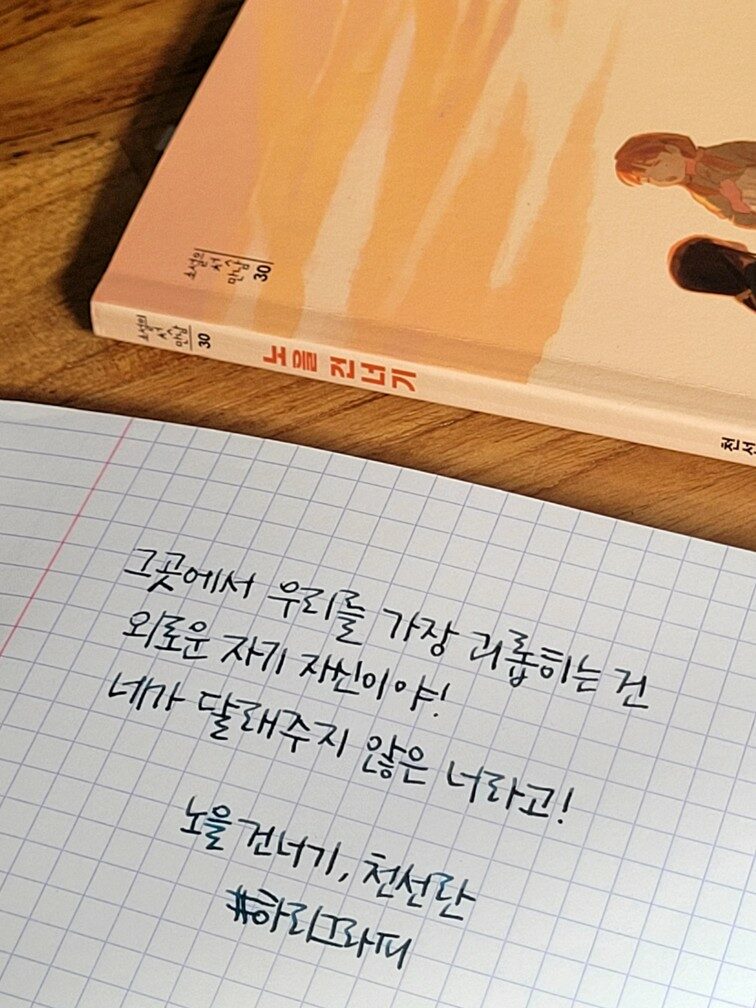 소설의
첫
만남
30
소설의
첫
만남
30
노을 건너기
천선
그곳에서 우리를 가장 괴롭히는 건
외로운 자기 자신이야!
네가 달래주지 않은 너라고!
노을 건너기, 천선란
#하리그라피